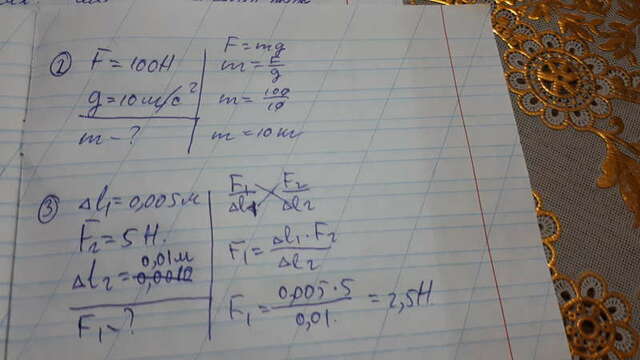 ② F = 100Н
g = 10 м/с²
m - ?
F = mg
m = F/g
m = 100/10
m = 10 кг
③ Δl₁ = 0,005 м
F₂ = 5 Н.
0,01 м
Δl₂ =
F₁ - ?
F₁/Δl₁ F₂/Δl₂
F₁ = Δl₁·F₂/Δl₂
F₁ = 0,005·5/0,01. = 2,5Н